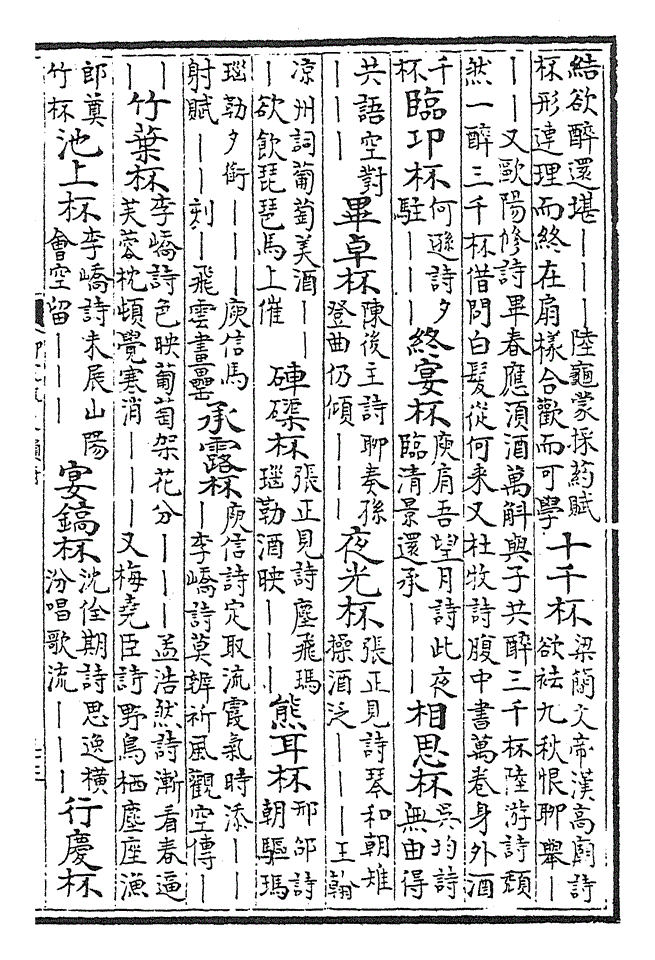 結欲醉還堪———陸龜蒙採葯賦
杯形連理而終在扇樣合歡而可學
十千杯
梁簡文帝漢高廟詩
欲袪九秋恨聊舉—
——又歐陽修詩畢春應湏酒萬斛與子共醉三千杯陸游詩頽
然一醉三千杯借問白髮從何来又杜牧詩腹中書萬卷身外酒
千
杯
臨卭杯
何遜詩夕
駐———
終宴杯
庾肩吾望月詩此夜
臨清景還承———
相思杯
吳均詩
無由得
共語空對
———
畢卓杯
陳後主詩聊奏孫
登曲仍傾———
夜光杯
張正見詩琴和朝雉
操酒泛———王翰
凉州詞葡萄美酒——
—欲飲琵琶馬上催
硨磲杯
張正見詩塵飛瑪
瑙勒酒映———
熊耳杯
邢邵詩
朝驅瑪
瑙勒夕銜———庾信馬
射賦——刻—飛雲畫罍
承露杯
庾信詩定取流霞氣時添——
—李嶠詩莫辨祈風觀空傳—
——
竹葉杯
李嶠詩色映葡萄架花分———孟浩然詩漸看春逼
芙蓉枕頓覺寒消———又梅堯臣詩野鳥栖塵座漁
郎奠
竹杯
池上杯
李嶠詩未展山陽
會空留———
宴鎬杯
沈佺期詩思逸橫
汾唱歌流———
行慶杯